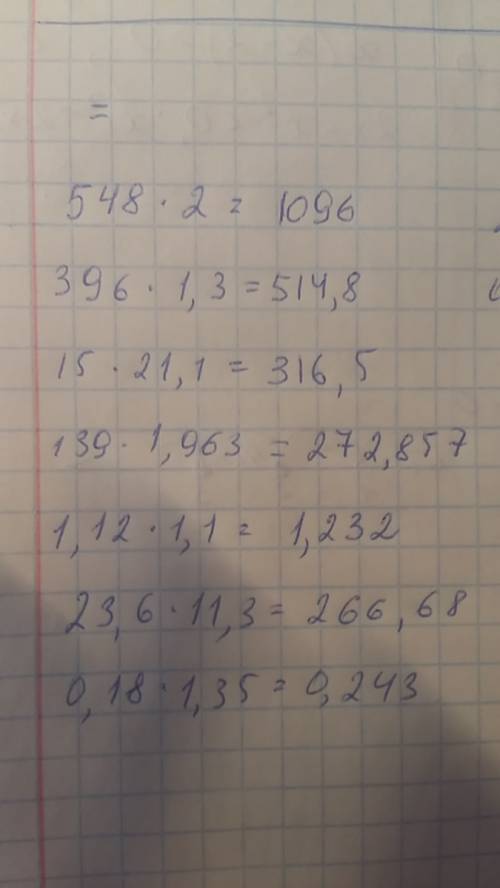 =
548 · 2 = 1096
396 · 1,3 = 514,8
15 · 21,1 = 316,5
139 · 1,963 = 272,857
1,12 · 1,1 = 1,232
23,6 · 11,3 = 266,68
0,18 · 1,35 = 0,243